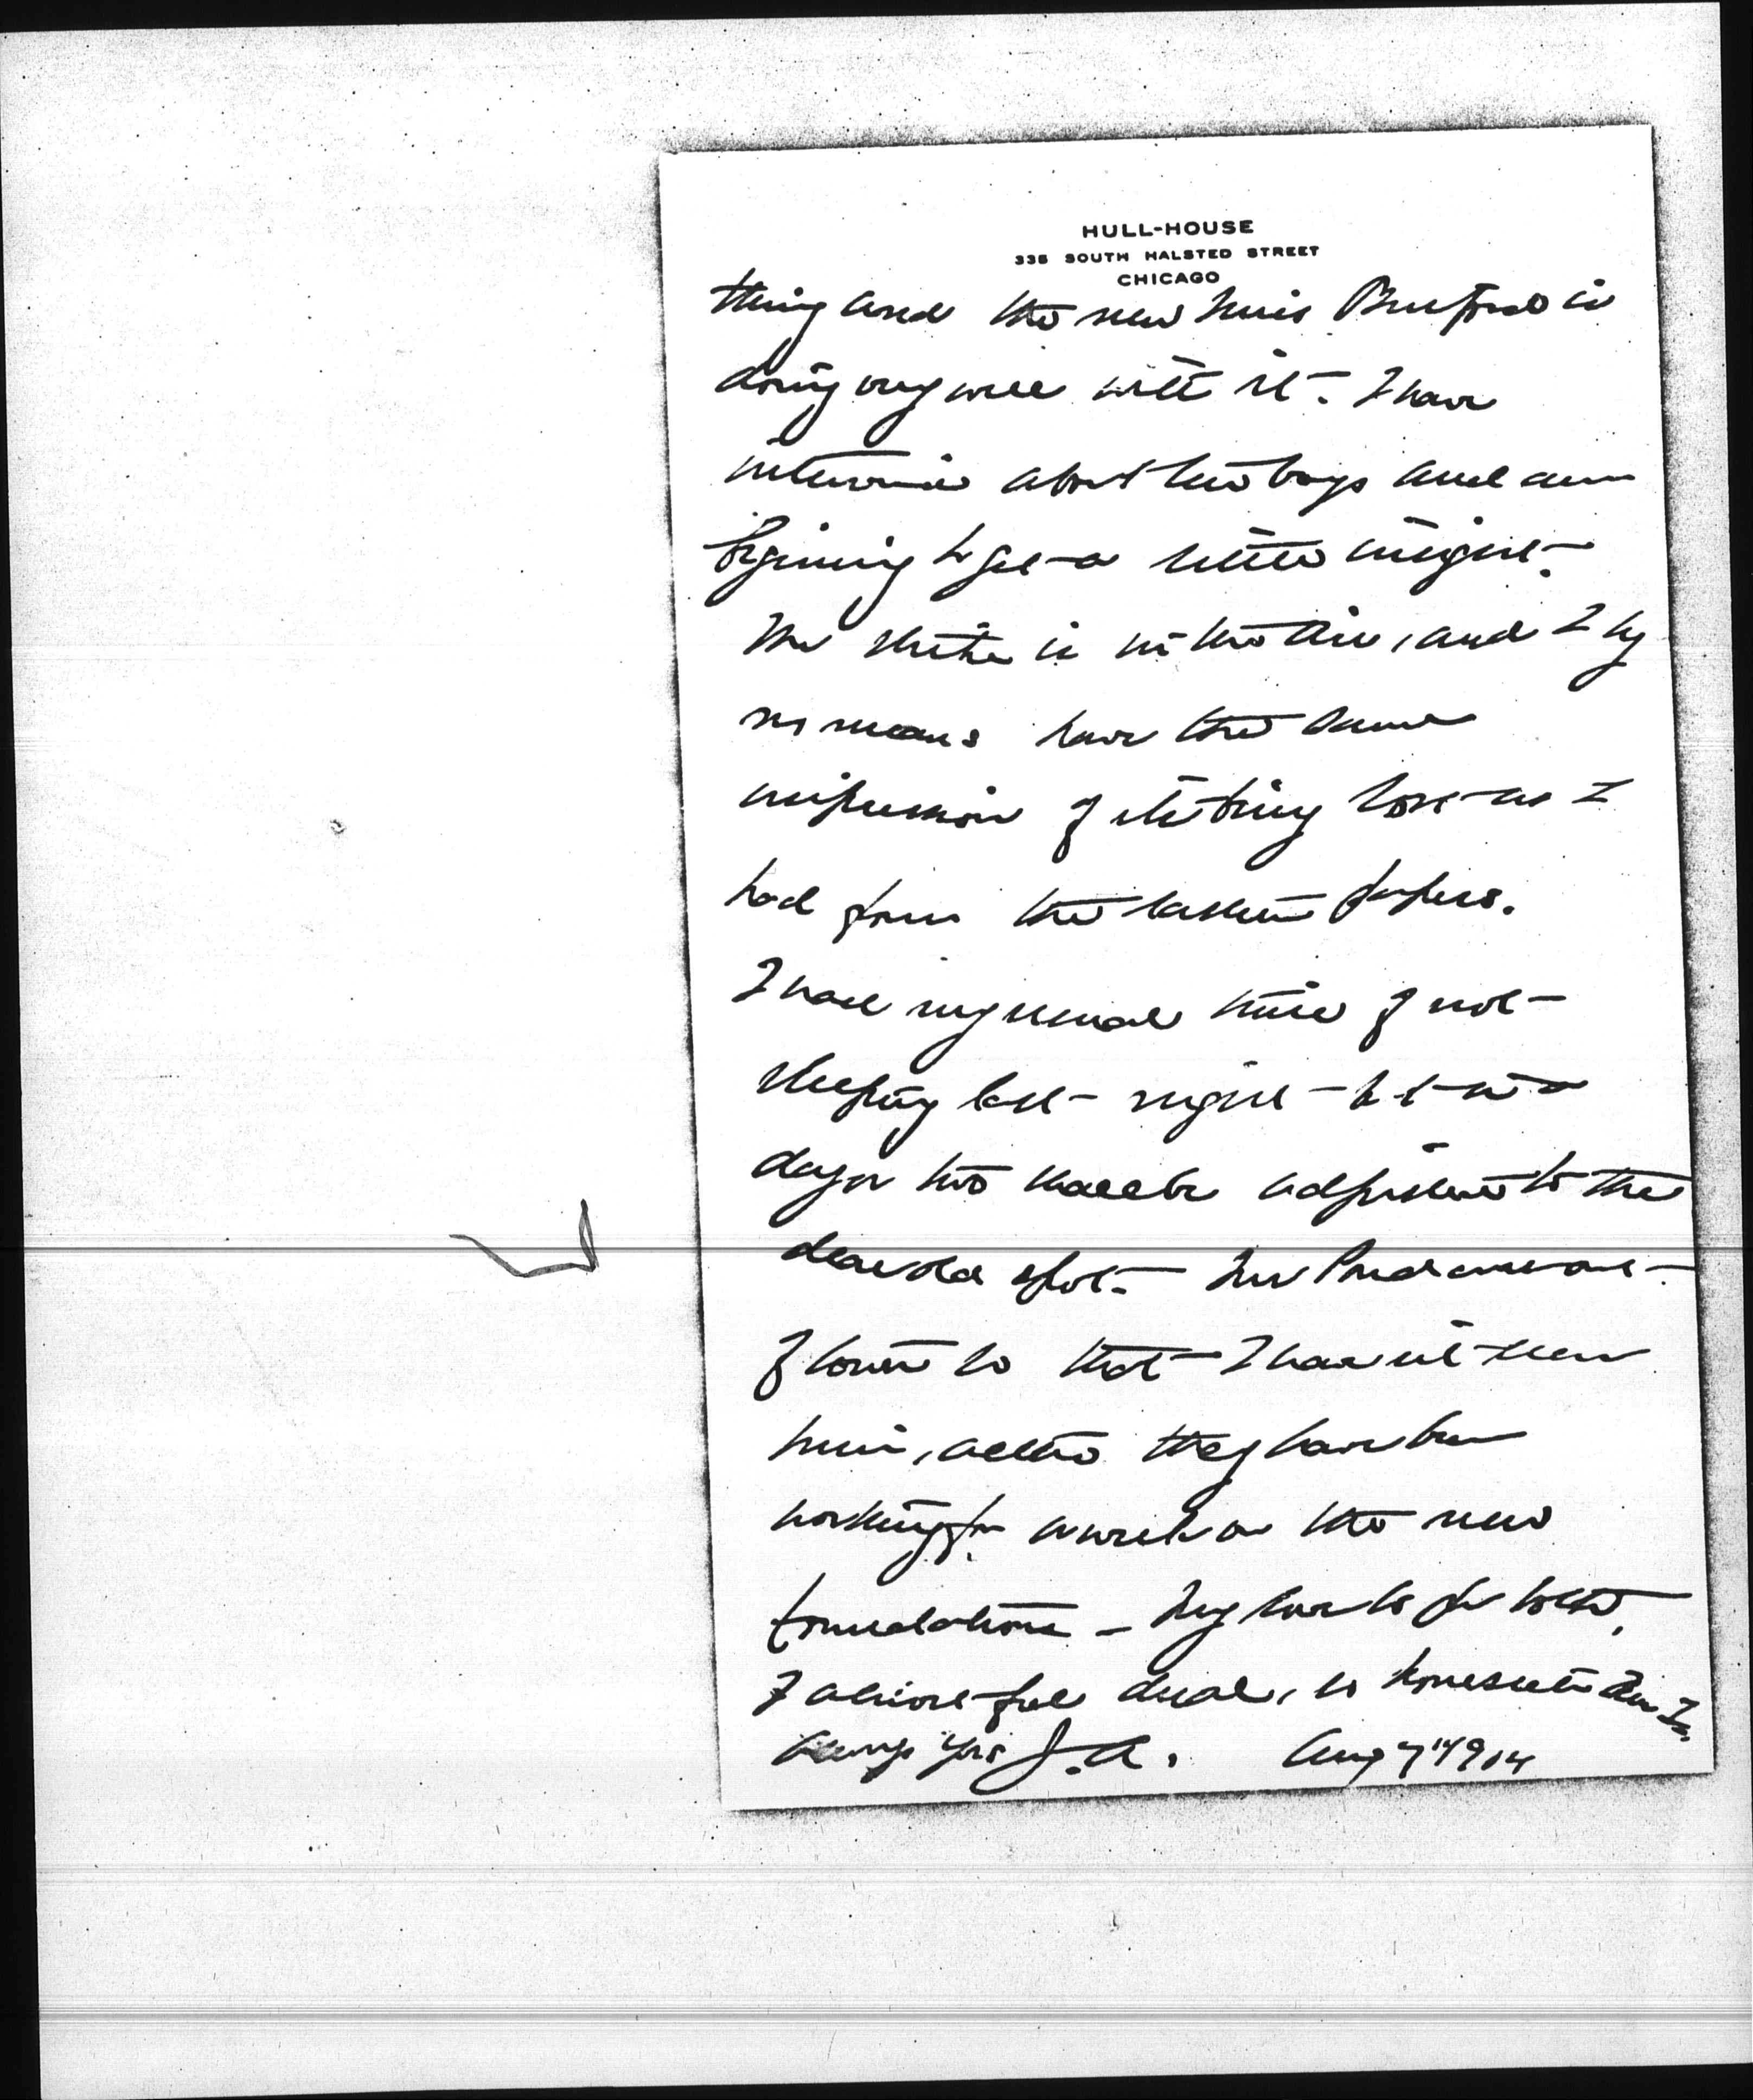 HULL-HOUSE
335 SOUTH HALSTED STREET
CHICAGO
thing and the new Miss is
doing very well with it. I have
about two boys and am
beginning to get a little insight.
The strike is in the air, and I by
no means have the same
impression of its being lost as I
had from the eastern papers.
I had my usual time of not
sleeping last night but in a
day or two shall be adjusted to the
dear old spot. Mr Pond
of town so that I haven't seen
him, altho they have been
working for a week on the new
foundations
I almost feel dead, so homesick am I.
Always yrs J.A. Aug 7" 1904